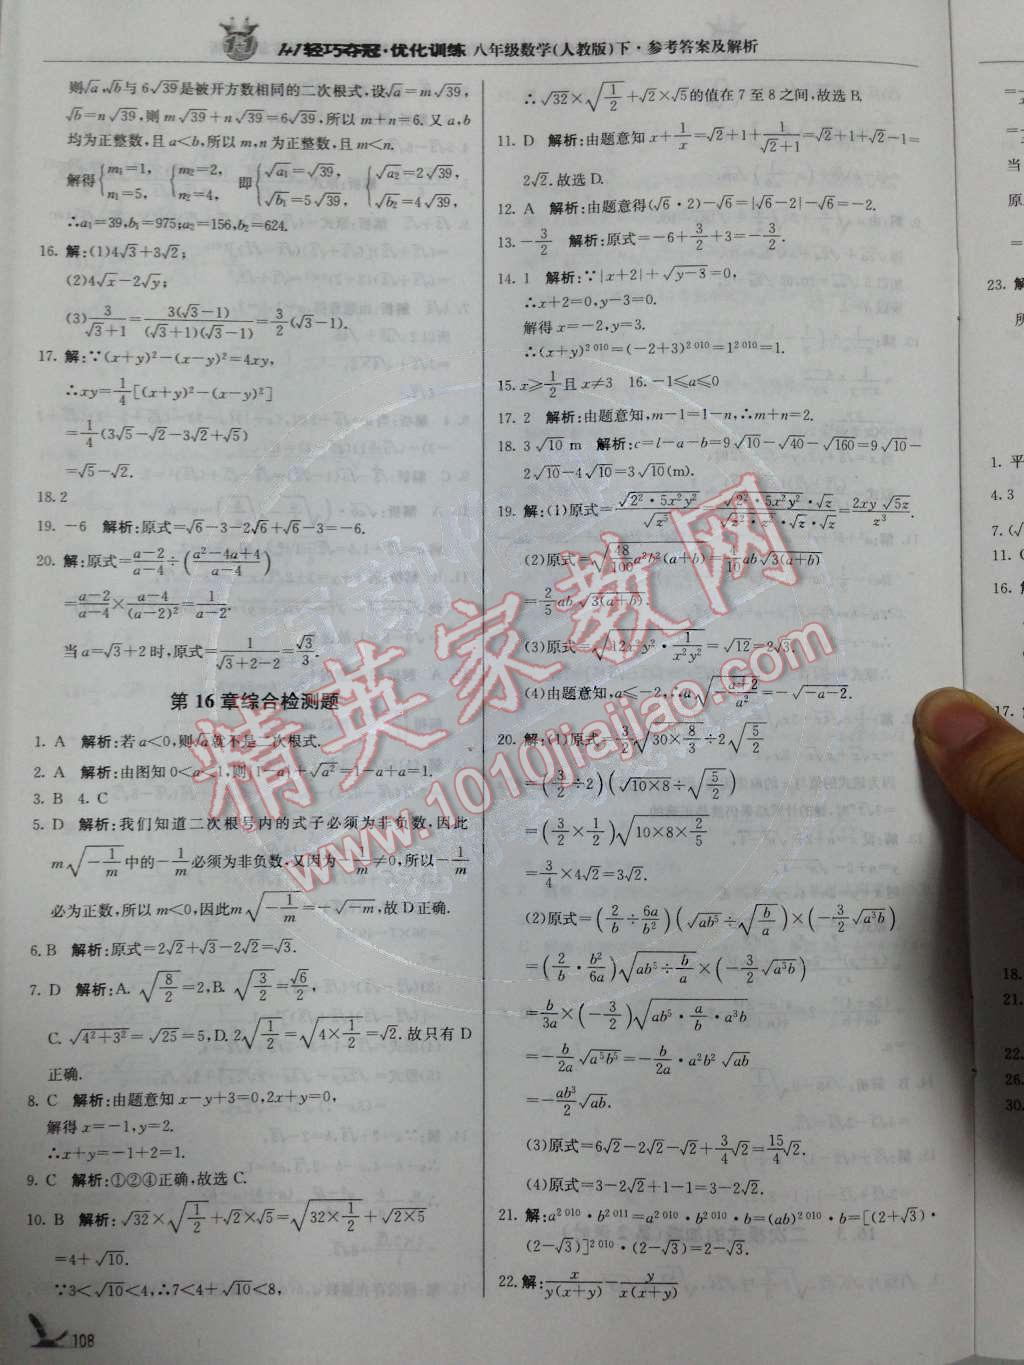 1+1轻巧夺冠·优化训练 八年级数学(人教版)下·参考答案及解析
则√a,√b与6√39是被开方数相同的二次根式,设√a=m√39,
√b=n√39,则m√39+n√39=6√39,所以m+n=6.又a,b
均为正整数,且a<b,所以m,n为正整数,且m<n.
解得{m₁=1, n₁=5, {m₂=2, n₂=4, 即{√a₁=√39, √b₁=5√39, {√a₂=2√39, √b₂=4√39,
∴a₁=39,b₁=975;a₂=156,b₂=624.
16. 解:(1)4√3+3√2;
(2)4√x-2√y;
(3)3/(√3+1)=3(√3-1)/((√3+1)(√3-1))=3/2(√3-1).
17. 解:∵(x+y)²-(x-y)²=4xy,
∴xy=1/4[(x+y)²-(x-y)²]
=1/4(3√5-√2-3√2+√5)
=√5-√2.
18. 2
19. -6 解析:原式=√6-3-2√6+√6-3=-6.
20. 解:原式=(a-2)/(a-4)÷((a²-4a+4)/(a-4))
=(a-2)/(a-4)×(a-4)/(a-2)²=1/(a-2).
当a=√3+2时,原式=1/(√3+2-2)=√3/3.
第16章综合检测题
1. A 解析:若a<0,则√a就不是二次根式.
2. A 解析:由图知0<a<1,则|1-a|+√a²=1-a+a=1.
3. B 4. C
5. D 解析:我们知道二次根号内的式子必须为非负数,因此
m√(-1/m)中的-1/m必须为非负数,又因为-1/m≠0,所以-1/m
必为正数,所以m<0,因此m√(-1/m)=-√-m,故D正确.
6. B 解析:原式=2√2+√3-2√2=√3.
7. D 解析:A. √(8/2)=2,B. √(3/2)=√6/2,
C. √(4²+3²)=√25=5,D. 2√(1/2)=√(4×1/2)=√2. 故只有D
正确.
8. C 解析:由题意知x-y+3=0,2x+y=0,
解得x=-1,y=2.
∴x+y=-1+2=1.
9. C 解析:①②④正确,故选C.
10. B 解析:√32×√(1/2)+√2×√5=√(32×1/2)+√(2×5)
=4+√10.
∵3<√10<4,∴7<4+√10<8,
108
∴√32×√(1/2)+√2×√5的值在7至8之间,故选B.
11. D 解析:由题意知x+1/x=√2+1+1/(√2+1)=√2+1+√2-1=
2√2.故选D.
12. A 解析:由题意得(√6·2)-√6=|√6-2|-√6=-2.
13. -3/2 解析:原式=-6+3/2+3=-3/2.
14. 1 解析:∵|x+2|+√(y-3)=0,
∴x+2=0,y-3=0.
解得x=-2,y=3.
∴(x+y)²⁰¹⁰=(-2+3)²⁰¹⁰=1²⁰¹⁰=1.
15. x≥1/2且x≠3 16. -1≤a≤0
17. 2 解析:由题意知,m-1=1-n,∴m+n=2.
18. 3√10 m 解析:c=l-a-b=9√10-√40-√160=9√10-
2√10-4√10=3√10(m).
19. 解:(1)原式=√(2²·5x²y²)/√z³=(√(2²·5x²y²)·√z)/(√z²·√z·√z)=2xy√5z/z³.
(2)原式=√(48/100 a²b²(a+b))=4/10 ab√3(a+b)
=2/5 ab√3(a+b).
(3)原式=√(12x³y³·1/(x²y²))=√12=2√3.
(4)由题意知,a≤-2,∴a√(-(a+2)/a²)=-√(-a-2).
20. 解:(1)原式=3/2√(30×8/3)÷2√(5/2)
=(3/2÷2)(√(10×8)÷√(5/2))
=(3/2×1/2)√(10×8×2/5)
=3/4×4√2=3√2.
(2)原式=(2/b÷6a/b²)(√ab⁵÷√(b/a))×(-3/2√a³b)
=(2/b·b²/6a)√(ab⁵÷b/a)×(-3/2√a³b)
=b/3a×(-3/2)√(ab⁵·a/b·a³b)
=-b/2a√a⁵b⁵=-b/2a·a²b²√ab
=-ab³/2√ab.
(3)原式=6√2-2√2-√2+3/4√2=15/4√2.
(4)原式=3-2√2+1-1=3-2√2.
21. 解:a²⁰¹⁰·b²⁰¹¹=a²⁰¹⁰·b²⁰¹⁰·b=(ab)²⁰¹⁰·b=[(2+√3)·
(2-√3)]²⁰¹⁰·(2-√3)=2-√3.
22. 解:x/(y(x+y))-y/(x(x+y))
23. 解
原
1. 平
4. 3
7. (√
11. (
16.
17.
18.
21.
22.
26.
30.
精英家教网
www.1010jiajiao.com